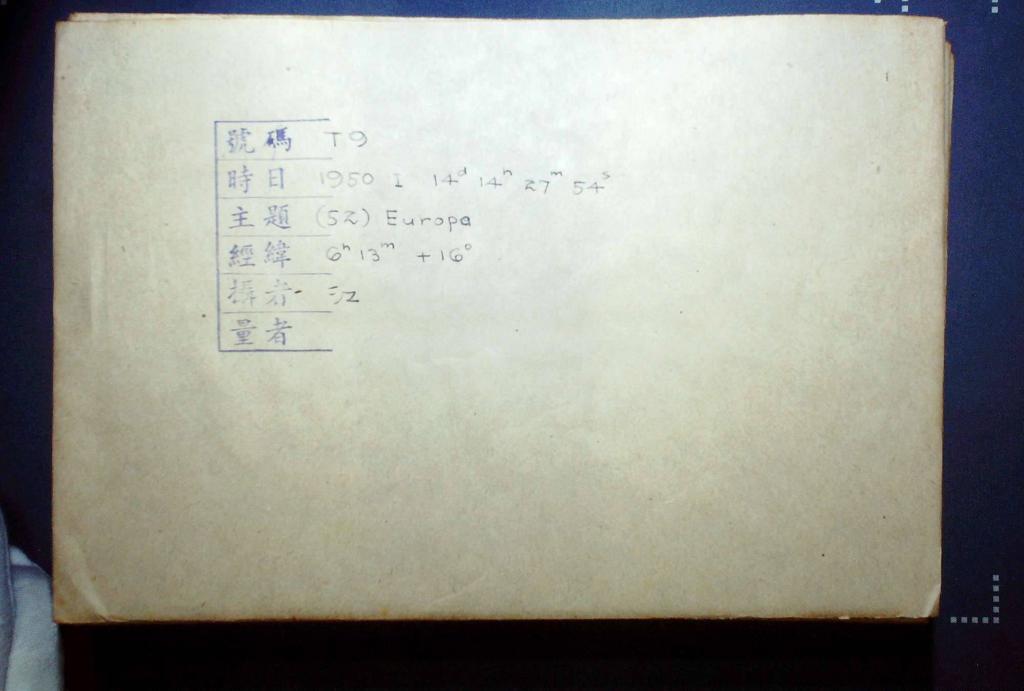 號碼 T9
時日 1950 I 14ᵈ 14ʰ 27ᵐ 54ˢ
主題 (52) Europa
經緯 6ʰ 13ᵐ +16°
攝者 江
量者